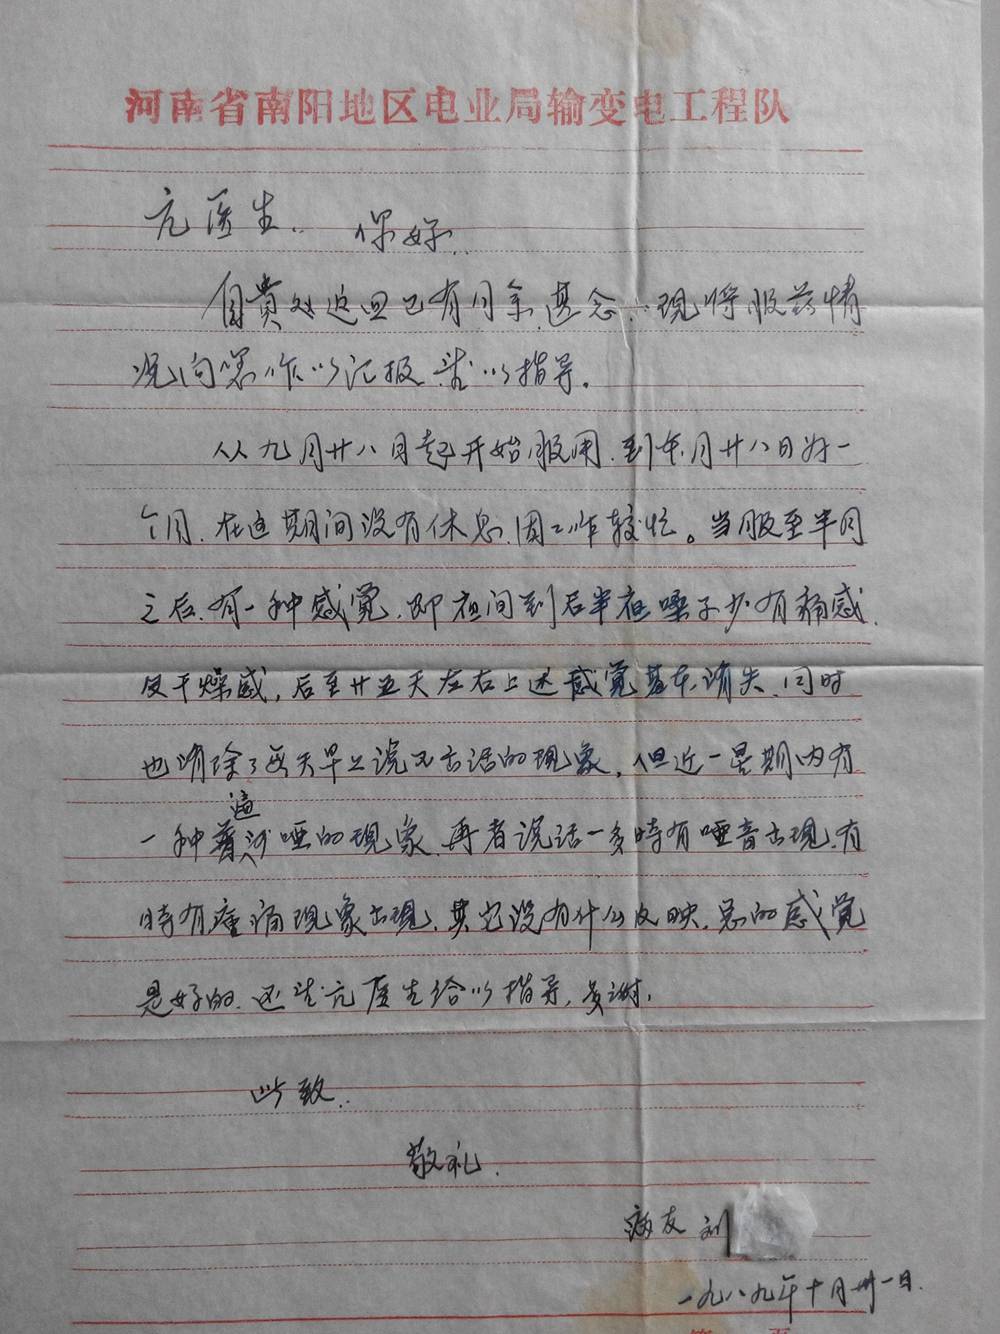 河南省南阳地区电业局输变电工程队
亢医生.. 你好.
自貴处返回已有月余甚念. 现将服药情
况向您作以汇报 望以指导.
从九月廿八日起开始服用. 到本月廿八日为一
个月. 在这期间没有休息. 因工作较忙。当服至半月
之后. 有一种感觉. 即夜间到后半夜嗓子少有痛感.
及干燥感, 后至廿五天左右上述感觉基本消失. 同时
也消除了每天早上说不出话的现象. 但近一星期内有
一种普遍沙哑的现象. 再者说话一多時有哑音出现. 有
時有疼痛现象出现. 其它没有什么反映. 总的感觉
是好的. 还望亢医生给以指导, 多谢.
此致..
敬礼.
病友 刘
一九八九年十月卅一日.
第 页